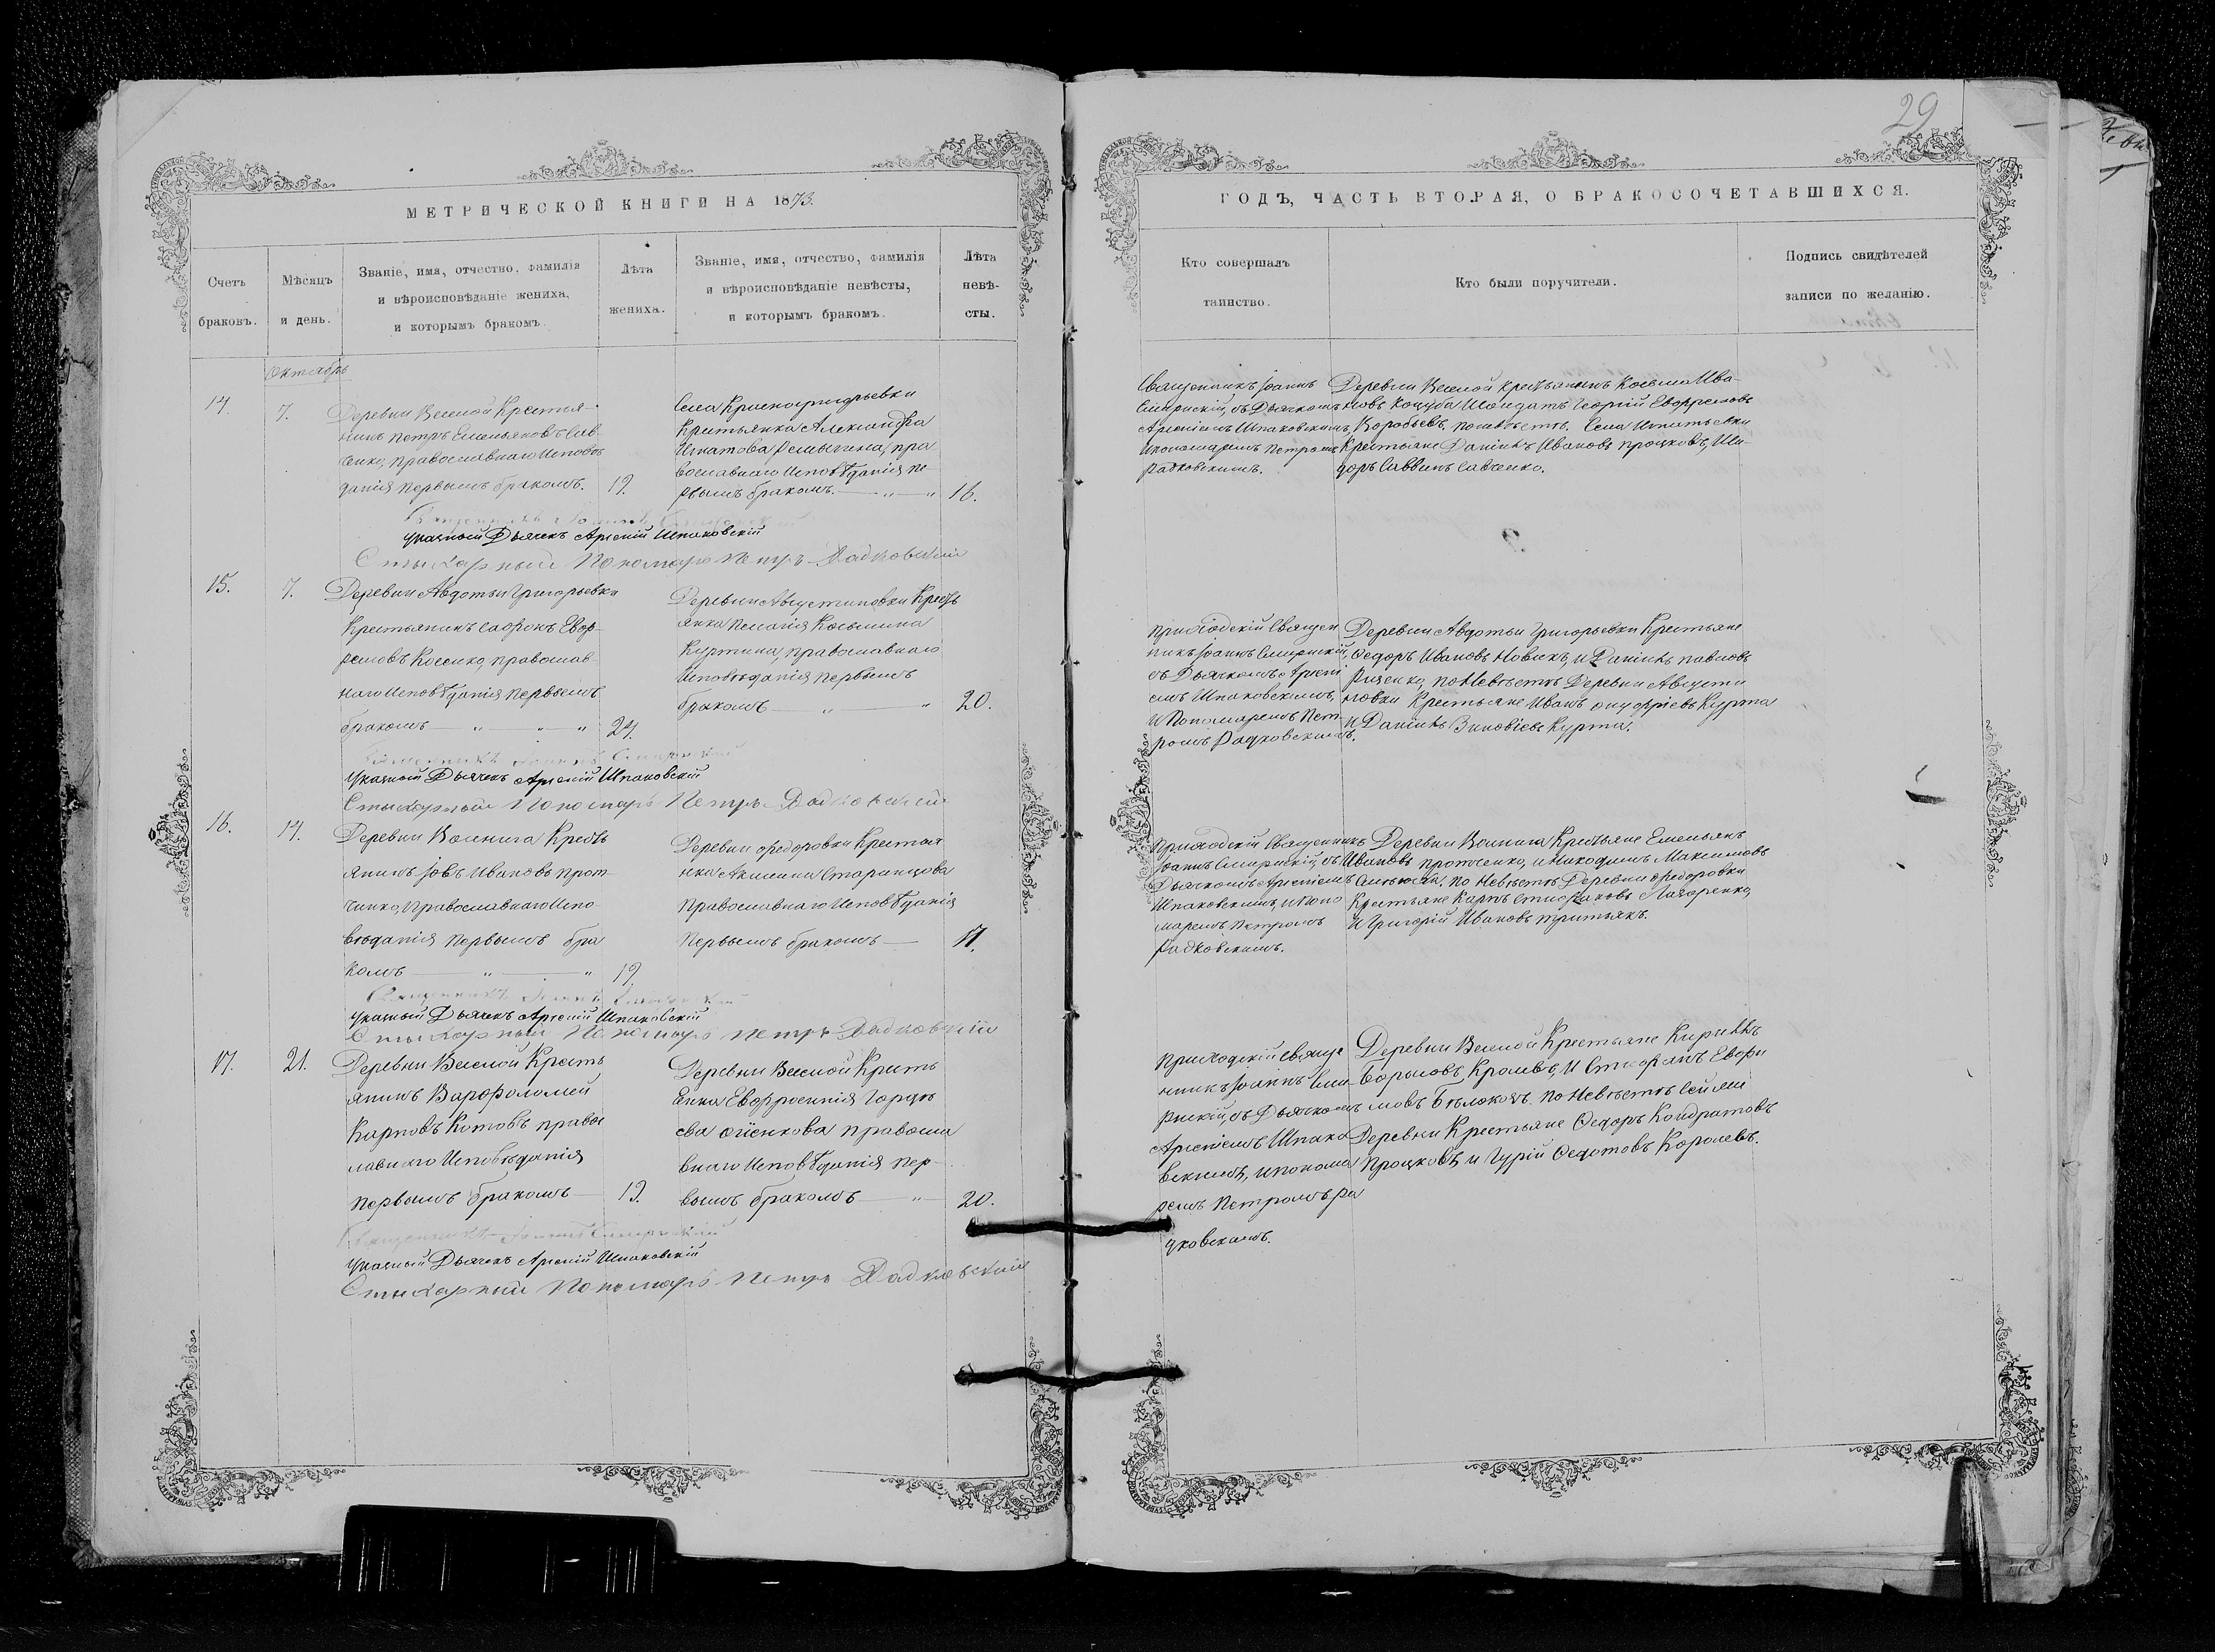 29
МЕТРИЧЕСКОЙ КНИГИ НА 1873.
ГОДЪ, ЧАСТЬ ВТОРАЯ, О БРАКОСОЧЕТАВШИХСЯ.
Счетъ
браковъ.
Мѣсяцъ
и день.
Званіе, имя, отчество, фамилія
и вѣроисповѣданіе жениха,
и которымъ бракомъ.
Лѣта
жениха.
Званіе, имя, отчество, фамилія
и вѣроисповѣданіе невѣсты,
и которымъ бракомъ.
Лѣта
невѣ-
сты.
Кто совершалъ
таинство.
Кто были поручители.
Подпись свидѣтелей
записи по желанію.
Октябрь
14.
7.
Деревни Веселой Крестья-
нинъ Петръ Емельяновъ Сав
ченко, православнаго Исповѣ
данія первымъ бракомъ.
19.
Села Красногригорьевки
Крестьянка Александра
Игнатова, пра
вославнаго Исповѣданія пе
рвымъ бракомъ. — „ — „
16.
Священникъ Іоаннъ
Смирнскій, съ Дьячкомъ
Арсеніемъ Шпаковскимъ,
Пономаремъ Петромъ
Радковскимъ.
Деревни Веселой Крестьянинъ Косьма Ива-
новъ Коцуба Солдатъ Георгій Евфремовъ
Воробьевъ. по невѣстѣ. Села Игнатьевки
Крестьяне Даніилъ Ивановъ Процковъ, Иси-
доръ Саввинъ Савченко.
Священникъ Іоаннъ Смирнскій
Указный Дьячекъ Арсеній Шпаковскій
Стихарный Пономарь Петръ Радковскій
15.
7.
Деревни Авдотьи Григорьевки
Крестьянинъ Софронъ Евф-
ремовъ, православ-
наго Исповѣданія первымъ
бракомъ — „ — „ — „
24.
Деревни Августиновки Кресть
янка Пелагія Косьмина
Куртина, православнаго
Исповѣданія первымъ
бракомъ — „ — „
20.
Приходскій Священ
никъ Іоаннъ Смирнскій,
съ Дьячкомъ Арсені
емъ Шпаковскимъ,
и Пономаремъ Пет
ромъ Радковскимъ.
Деревни Авдотьи Григорьевки Крестьяне
Ѳедоръ Ивановъ Новикъ, и Даніилъ Павловъ
по Невѣстѣ Деревни Августи
новки Крестьяне Иванъ Онуфріевъ Курта
и Даніилъ Зиновіевъ Курта.
Священникъ Іоаннъ Смирнскій
Указный Дьячекъ Арсеній Шпаковскій
Стихарный Пономарь Петръ Радковскій
16.
14.
Деревни Воинига Кресть
янинъ Іовъ Ивановъ Прот
ченко, Православнаго Испо
вѣданія первымъ бра
комъ — „ — „
19.
Деревни Федоровки Крестья
нка Акилина Старинцова
Православнаго Исповѣданія
Первымъ бракомъ —
17.
Приходскій Священникъ
Іоаннъ Смирнскій, съ
Дьячкомъ Арсеніемъ
Шпаковскимъ, и Поно
маремъ Петромъ
Радковскимъ.
Деревни Воинига Крестьяне Емельянъ
Ивановъ Протченко, и Никодимъ Максимовъ
по Невѣстѣ Деревни Федоровки
Крестьяне Карпъ Стефановъ Лазаренко,
и Григорій Ивановъ Третьякъ.
Священникъ Іоаннъ Смирнскій
Указный Дьячекъ Арсеній Шпаковскій
Стихарный Пономарь Петръ Радковскій
17.
21.
Деревни Веселой Кресть
янинъ Варфоломей
Карповъ Котовъ право
славнаго Исповѣданія
первымъ бракомъ —
19.
Деревни Веселой Кресть
янка Евфросинія
православ
внаго Исповѣданія пер-
вымъ бракомъ — „ —
20.
Приходскій Священ
никъ Іоаннъ Сми-
рнскій, съ Дьячкомъ
Арсеніемъ Шпако
вскимъ, и понома
ремъ Петромъ Ра
дковскимъ.
Деревни Веселой Крестьяне Кириллъ
и Стефанъ Евфи
мовъ Бѣлоконь. по Невѣстѣ Сей же
Деревни Крестьяне Ѳедоръ Кондратовъ
Процковъ, и Гурій Ѳедотовъ Королевъ.
Священникъ Іоаннъ Смирнскій
Указный Дьячекъ Арсеній Шпаковскій
Стихарный Пономарь Петръ Радковскій